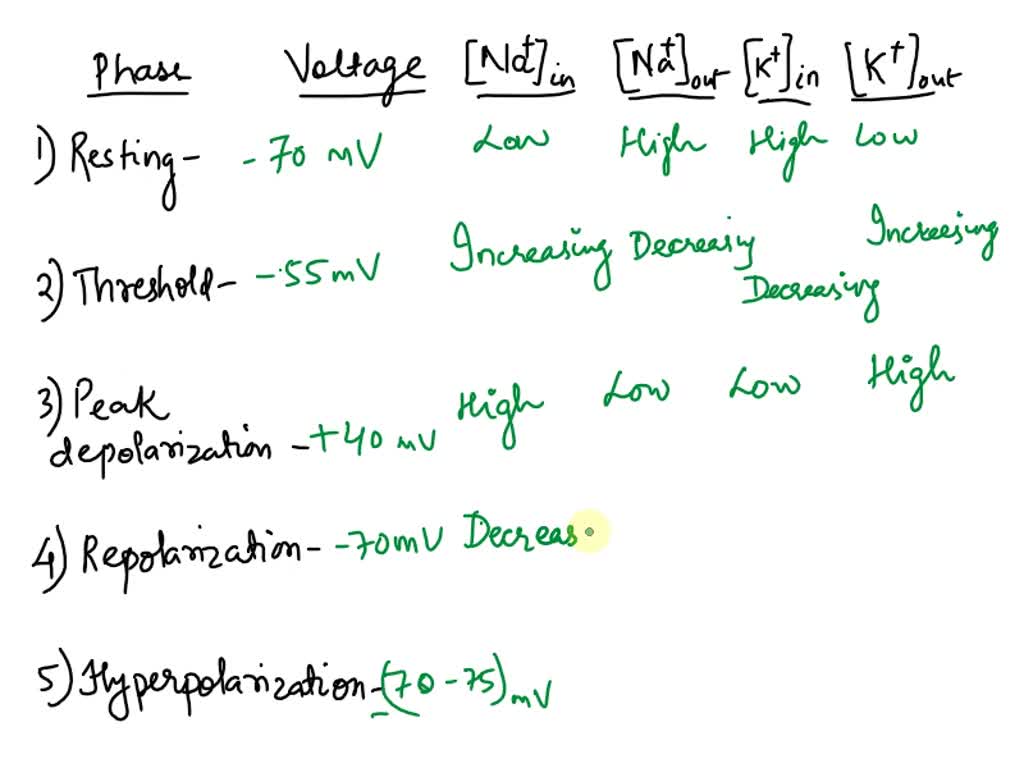 Phase Voltage [Na+]in [Na+]out [K+]in [K+]out
1) Resting - -70 mV Low High High Low
2) Threshold - -55mV Increasing Decreasing Decreasing Increesing
3) Peak
depolarization - +40 mV High Low Low High
4) Repolarization - -70mV Decreas
5) Hyperpolarization -(70-75)mV